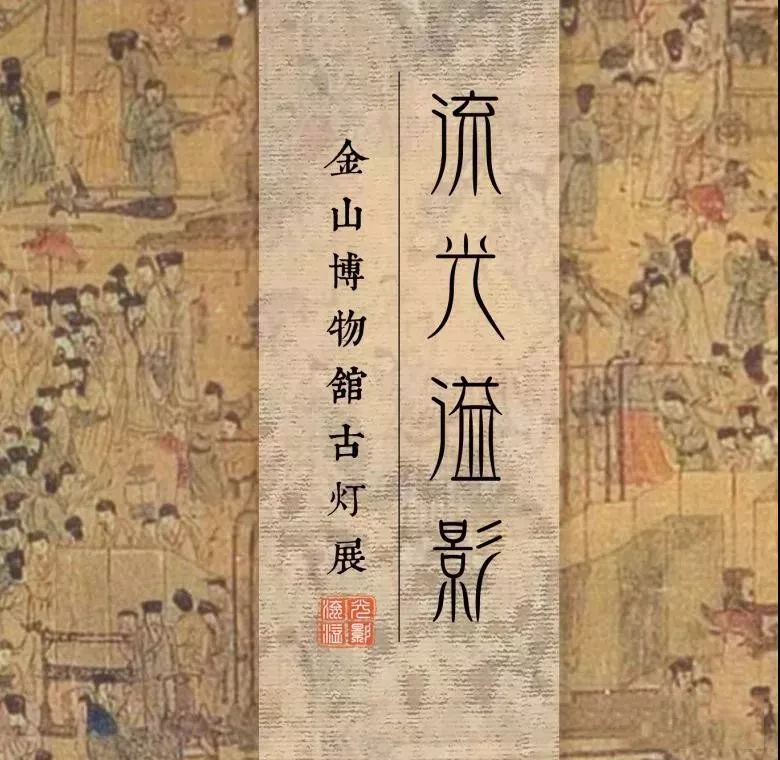 流光溢影
金山博物舘古灯展
流光
溢影